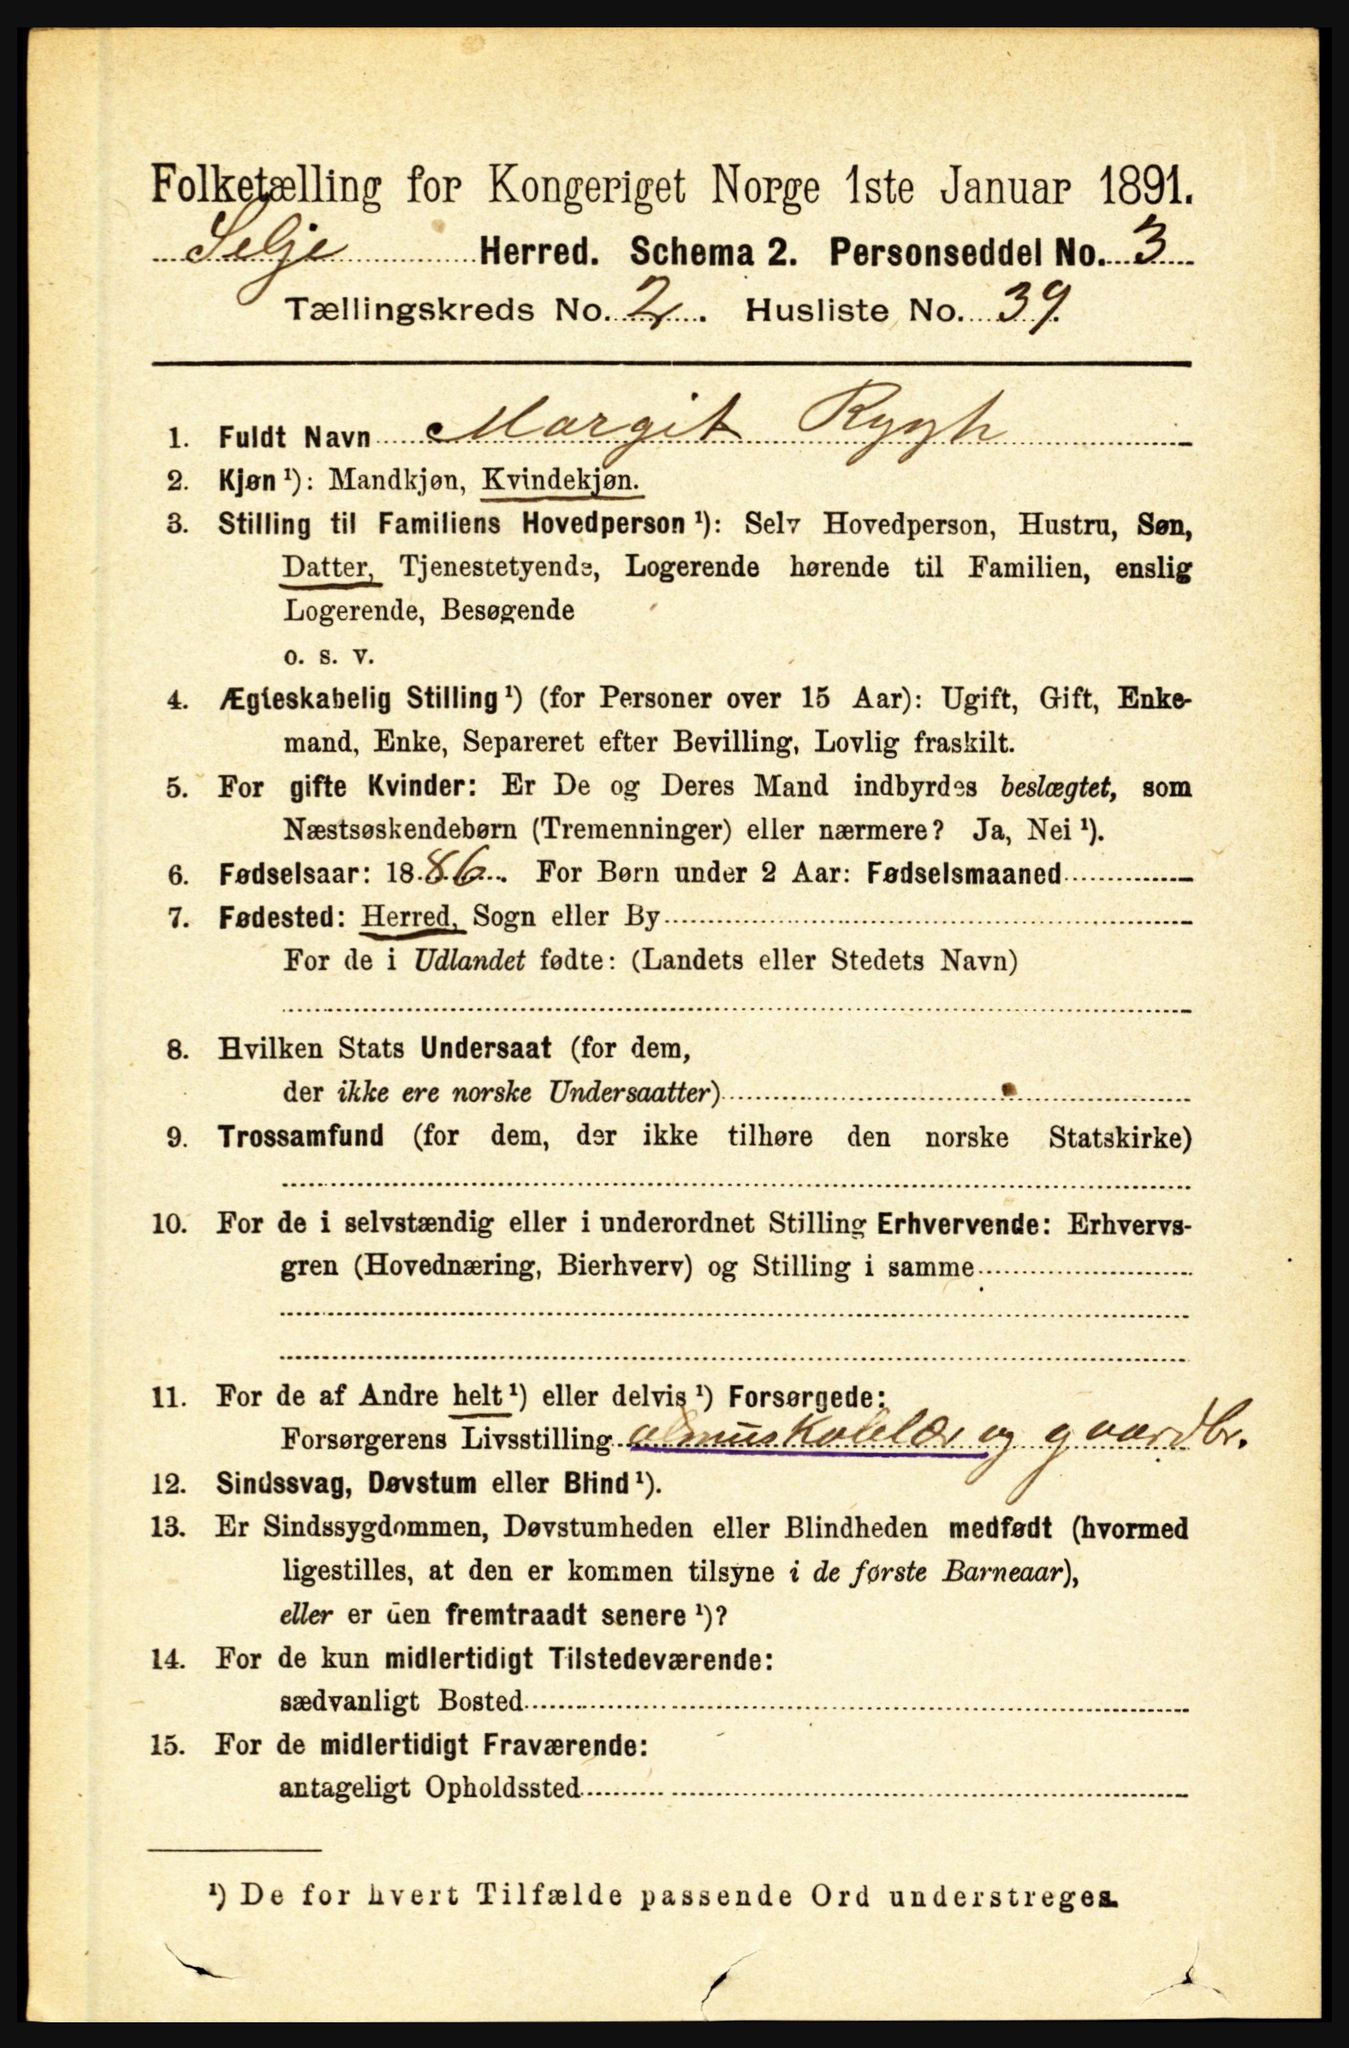 Folketælling for Kongeriget Norge 1ste Januar 1891.
Selje Herred. Schema 2. Personseddel No. 3
Tællingskreds No. 2. Husliste No. 39.
1. Fuldt Navn Margit Rygh
2. Kjøn¹): Mandkjøn, Kvindekjøn.
3. Stilling til Familiens Hovedperson¹): Selv Hovedperson, Hustru, Søn,
Datter, Tjenestetyende, Logerende hørende til Familien, enslig
Logerende, Besøgende
o. s. v.
4. Ægteskabelig Stilling¹) (for Personer over 15 Aar): Ugift, Gift, Enke-
mand, Enke, Separeret efter Bevilling, Lovlig fraskilt.
5. For gifte Kvinder: Er De og Deres Mand indbyrdes beslægtet, som
Næstsøskendebørn (Tremenninger) eller nærmere? Ja, Nei¹).
6. Fødselsaar: 1886. For Børn under 2 Aar: Fødselsmaaned
7. Fødested: Herred, Sogn eller By
For de i Udlandet fødte: (Landets eller Stedets Navn)
8. Hvilken Stats Undersaat (for dem,
der ikke ere norske Undersaatter)
9. Trossamfund (for dem, der ikke tilhøre den norske Statskirke)
10. For de i selvstændig eller i underordnet Stilling Erhvervende: Erhvervs-
gren (Hovednæring, Bierhverv) og Stilling i samme
11. For de af Andre helt¹) eller delvis¹) Forsørgede:
Forsørgerens Livsstilling almuskolelær og gaardbr.
12. Sindssvag, Døvstum eller Blind¹).
13. Er Sindssygdommen, Døvstumheden eller Blindheden medfødt (hvormed
ligestilles, at den er kommen tilsyne i de første Barneaar),
eller er den fremtraadt senere¹)?
14. For de kun midlertidigt Tilstedeværende:
sædvanligt Bosted
15. For de midlertidigt Fraværende:
antageligt Opholdssted
¹) De for hvert Tilfælde passende Ord understreges.